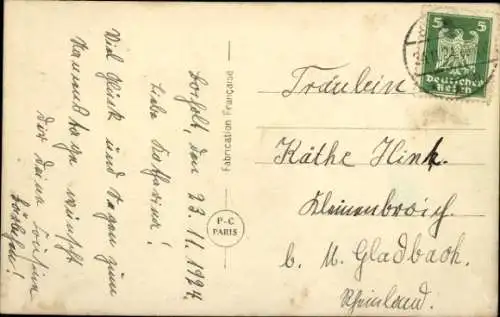 Dorfelt, den 23.11.1924.
Liebe Katharina!
Viel Glück und Segen zum
Namenstage wünscht
Dir Deine Cousine
Fabrication Française
P-C
PARIS
5 5
Deutsches
Reich
Fräulein
Käthe Hink
Kleinenbroich
b. M. Gladbach.
Rheinland.